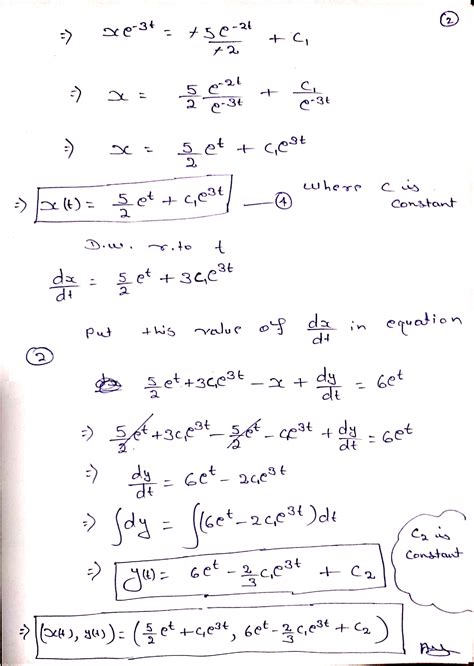 ②
=> xe^-3t = +5e^-2t / +2 + C₁
=> x = 5/2 e^-2t/e^-3t + C₁/e^-3t
=> x = 5/2 e^t + C₁e^3t
=> x(t) = 5/2 e^t + C₁e^3t —④ where C is constant
D.w. r.to t
dx/dt = 5/2 e^t + 3C₁e^3t
Put this value of dx/dt in equation
②
5/2 e^t + 3C₁e^3t - x + dy/dt = 6e^t
=> 5/2 e^t + 3C₁e^3t - 5/2 e^t - C₁e^3t + dy/dt = 6e^t
=> dy/dt = 6e^t - 2C₁e^3t
=> ∫dy = ∫(6e^t - 2C₁e^3t)dt
C₂ is constant
=> y(t) = 6e^t - 2/3 C₁e^3t + C₂
=> (x(t), y(t)) = (5/2 e^t + C₁e^3t, 6e^t - 2/3 C₁e^3t + C₂)